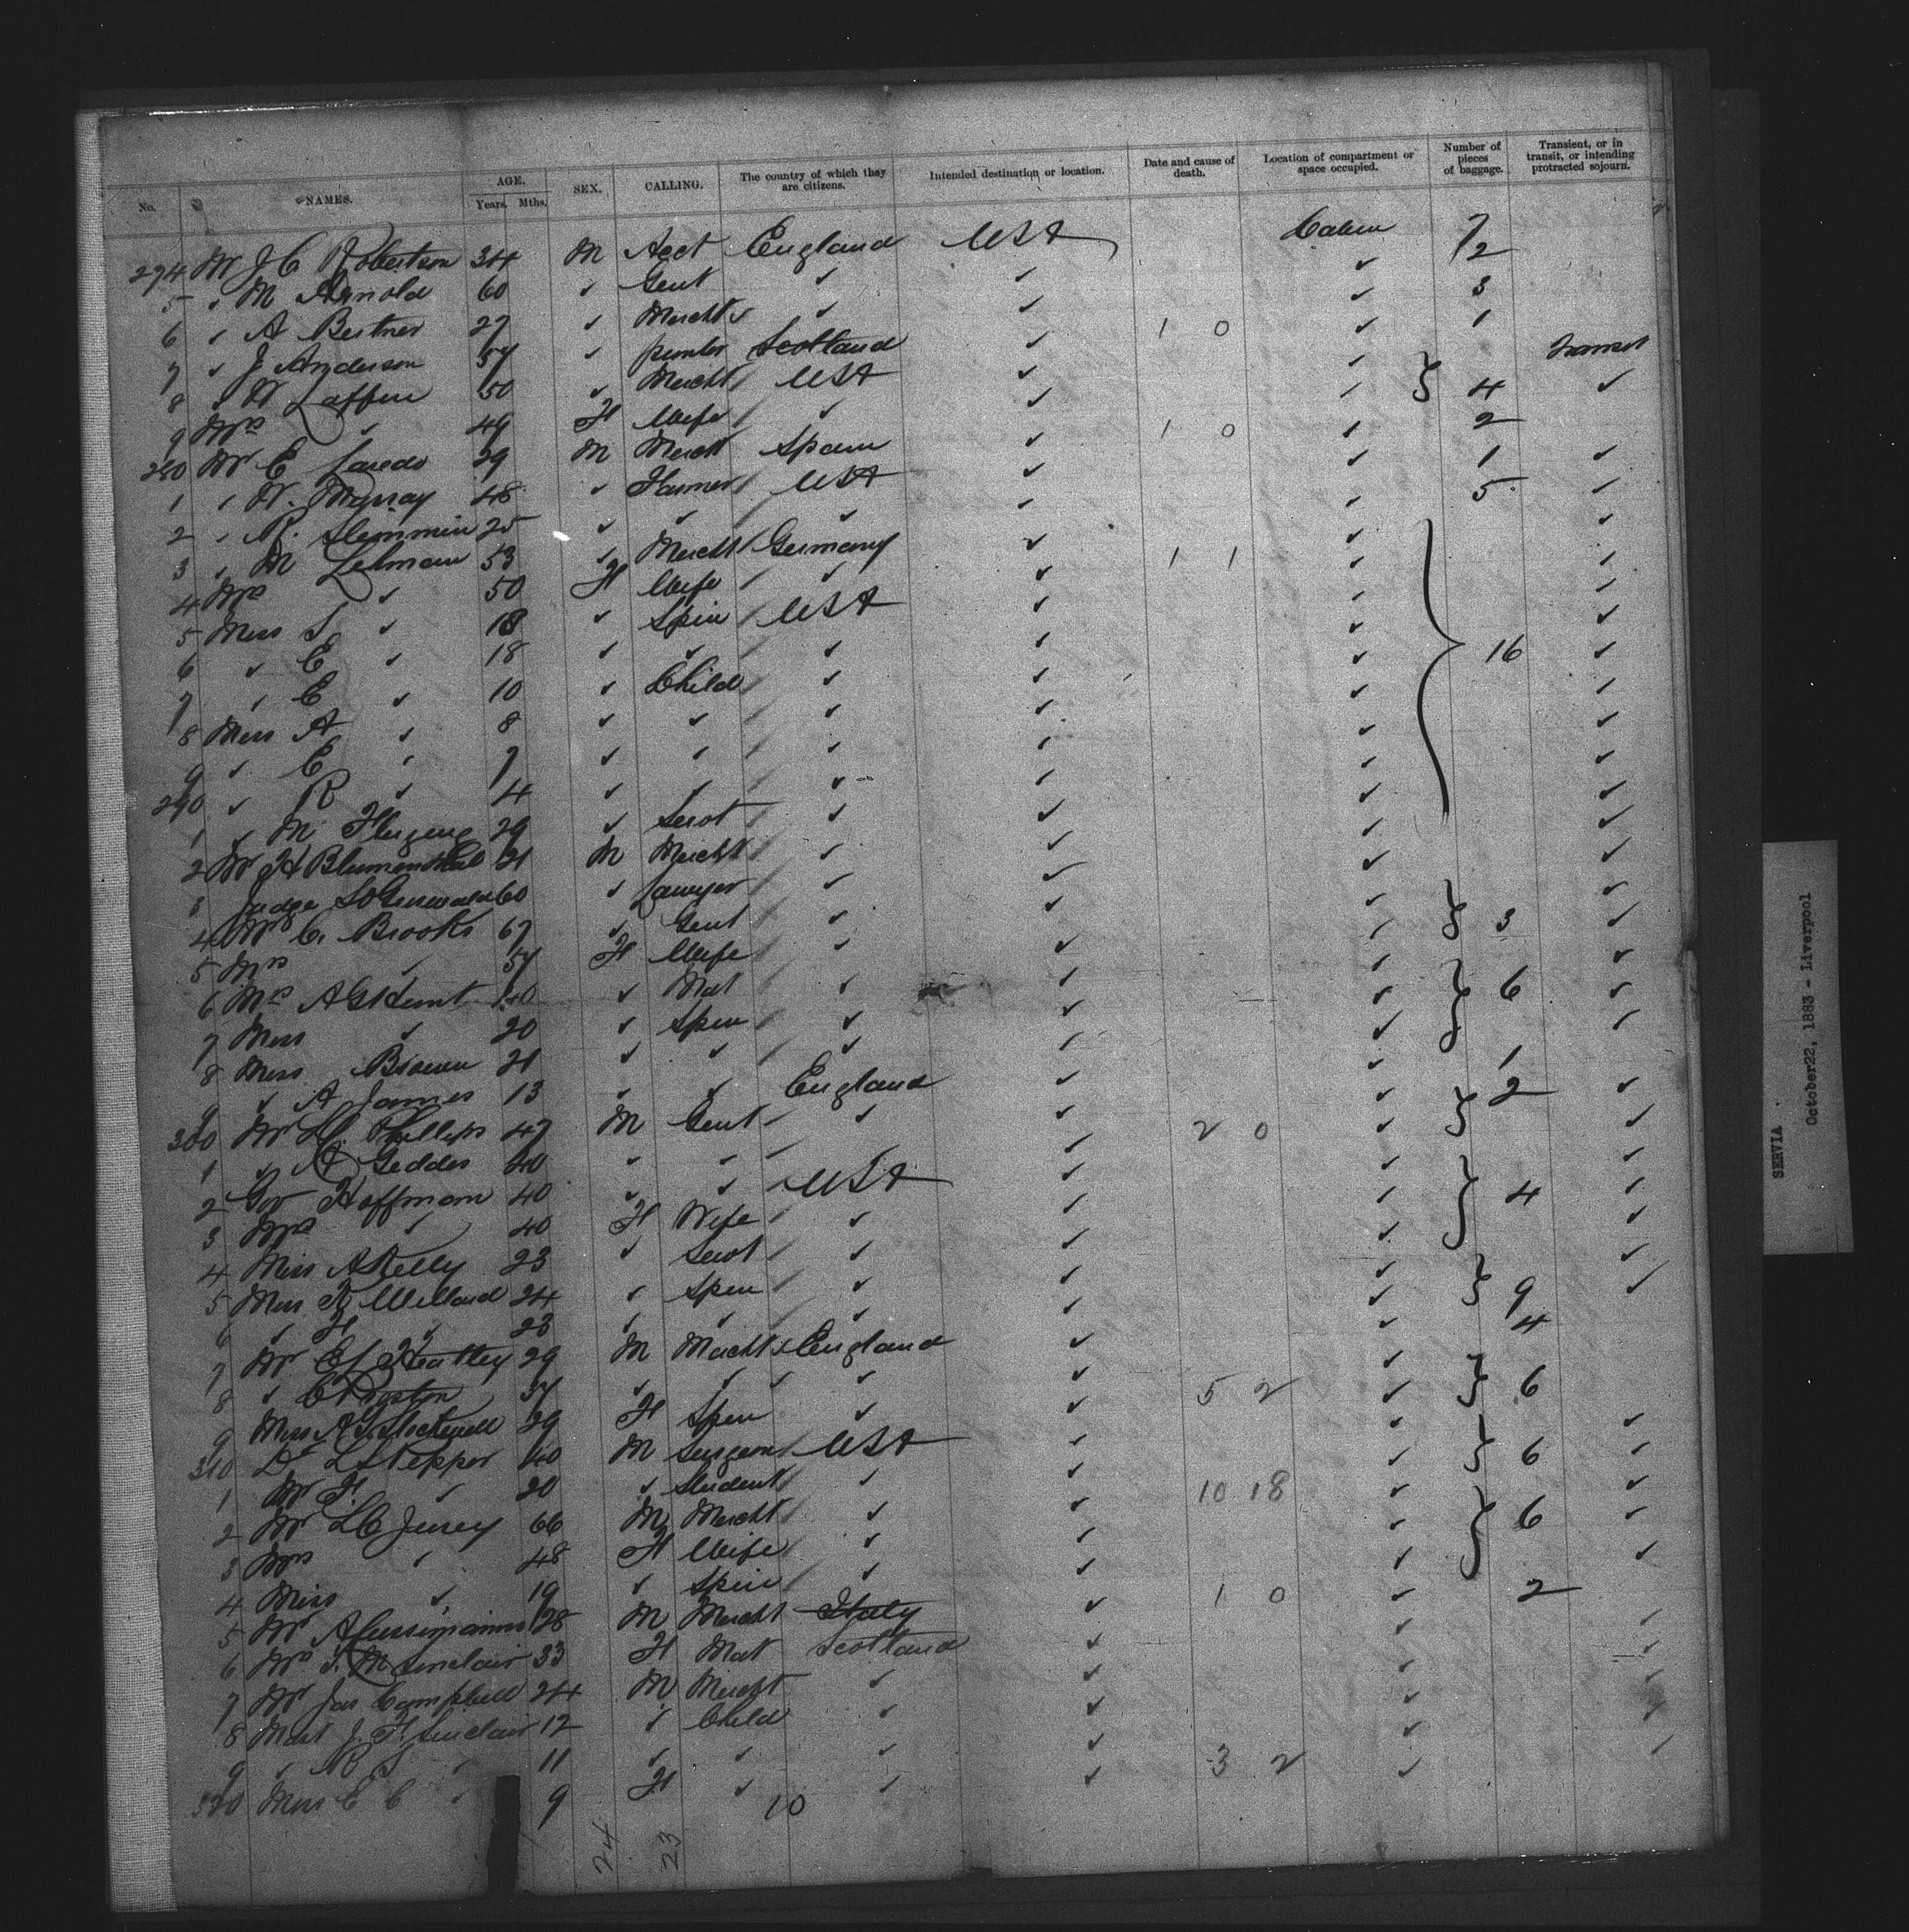 No. NAMES. AGE. Years. Mths. SEX. CALLING. The country of which they are citizens. Intended destination or location. Date and cause of death. Location of compartment or space occupied. Number of pieces of baggage. Transient, or in transit, or intending protracted sojourn.
274 Mr J C Robertson 34 M Agct England USA Cabin 7
5 ✓ M Arnold 60 ✓ Gent ✓ ✓ ✓ 2
6 ✓ A 27 ✓ Mercht ✓ ✓ ✓ 3
7 ✓ J Anderson 57 ✓ Scotland ✓ 1 0 ✓ 1
8 ✓ W Laffin 50 ✓ Mercht USA ✓ ✓
9 Mrs ✓ 49 F Wife ✓ ✓ ✓ 4 ✓
280 Mr E Laredo 29 M Mercht Spain ✓ 1 0 ✓ 2
1 ✓ W. Murray 48 ✓ Farmer USA ✓ ✓ 1 ✓
2 ✓ R. Slemmin 25 ✓ ✓ ✓ ✓ ✓ 5 ✓
3 ✓ M Lehman 53 ✓ Mercht Germany ✓ 1 1 ✓ ✓
4 Mrs ✓ 50 F Wife ✓ ✓ ✓ ✓
5 Miss S ✓ 18 ✓ Spin USA ✓ ✓ ✓
6 ✓ E ✓ 18 ✓ ✓ ✓ ✓ ✓ ✓
7 ✓ E ✓ 10 ✓ Child ✓ ✓ ✓ 16 ✓
8 Miss A ✓ 8 ✓ ✓ ✓ ✓ ✓ ✓
9 ✓ E ✓ 7 ✓ ✓ ✓ ✓ ✓ ✓
290 ✓ R ✓ 4 ✓ ✓ ✓ ✓ ✓ ✓
1 ✓ M 29 ✓ Servt ✓ ✓ ✓ ✓
2 Mr H Blumenthal 21 M Mercht ✓ ✓ ✓ ✓
3 Judge 60 ✓ Lawyer ✓ ✓ ✓ ✓
4 Mr C. Brooks 67 ✓ Gent ✓ ✓ ✓ 3 ✓
5 Mrs ✓ 57 F Wife ✓ ✓ ✓ ✓
6 Mrs A G Hunt 40 ✓ Mat ✓ ✓ ✓ 6 ✓
7 Miss ✓ 20 ✓ Spin ✓ ✓ ✓ ✓
8 Miss Brown 21 ✓ ✓ ✓ ✓ ✓ 1
9 ✓ A James 13 ✓ ✓ England ✓ ✓ 2 ✓
300 Mr Phillips 47 M Gent ✓ ✓ 2 0 ✓ ✓
1 ✓ A Geddes 40 ✓ ✓ ✓ ✓ ✓
2 Gov Hoffman 40 ✓ ✓ USA ✓ ✓ 4 ✓
3 Mrs ✓ 40 F Wife ✓ ✓ ✓ ✓
4 Miss A Kelly 23 ✓ Servt ✓ ✓ ✓ ✓
5 Miss K Willard 24 ✓ Spin ✓ ✓ ✓ 9 ✓
6 ✓ F ✓ 23 ✓ ✓ ✓ ✓ ✓ 4
7 Mr Heatley 29 M Mercht England ✓ ✓
8 ✓ 37 ✓ ✓ ✓ ✓ 5 2 ✓ 6
9 Miss 29 F Spin ✓ ✓ ✓ ✓
310 Dr Pepper 40 M Surgeon USA ✓ ✓ 6 ✓
1 Mr F ✓ 20 ✓ Student ✓ ✓ 10 18 ✓ ✓
2 Mr L C 66 M Mercht ✓ ✓ ✓ 6 ✓
3 Mrs ✓ 48 F Wife ✓ ✓ ✓ ✓
4 Miss ✓ 19 ✓ Spin ✓ ✓ 1 0 ✓ 2
5 Mr A 28 M Mercht Italy ✓ ✓ ✓
6 Mrs J. M Sinclair 33 F Mat Scotland ✓ ✓ ✓
7 Mr Jas Campbell 24 M Mercht ✓ ✓ ✓ ✓
8 Mast J. F. Sinclair 12 ✓ Child ✓ ✓ ✓ ✓
9 ✓ R S ✓ 11 ✓ ✓ ✓ ✓ 3 2 ✓ ✓
320 Miss E C ✓ 9 F ✓ ✓ ✓
10
24 23
SERVIA
October 22, 1883 - Liverpool